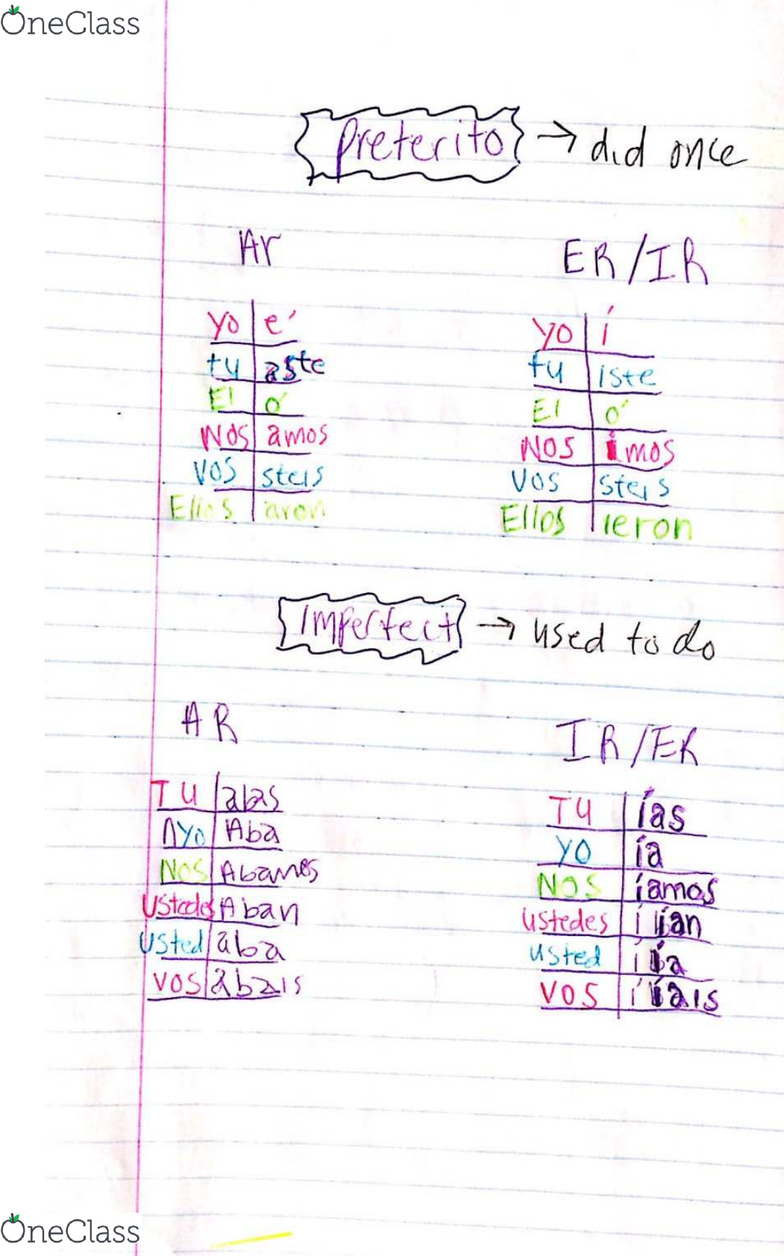 OneClass
preterito → did once
Ar ER/IR
yo é yo í
tu aste tu iste
El ó El ó
Nos amos Nos imos
Vos steis Vos steis
Ellos aron Ellos ieron
Imperfect → used to do
AR IR/ER
Tu abas Tu ías
yo Aba yo ía
Nos Abamos Nos íamos
Ustedes Aban ustedes ían
Usted aba usted ía
vos abais vos íais
OneClass